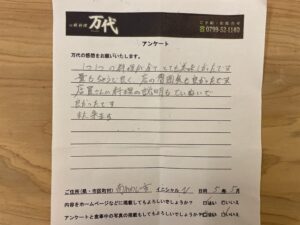 小鍋料理 万代
ご予約・お問合せ
☎0799-52-1180
アンケート
万代の感想をお願いいたします。
1つ1つの料理が全てとても美味しかったです
量もちょうど良く、店の雰囲気も良かったです
店員さんの料理の説明もていねいで
良かったです
また来ます
ご住所（県・市区町村） イニシャル 日時 5年 5月
内容をホームページなどに掲載してもよろしいでしょうか？ はい いいえ
アンケートと食事中の写真の掲載もよろしいでしょうか？ はい いいえ